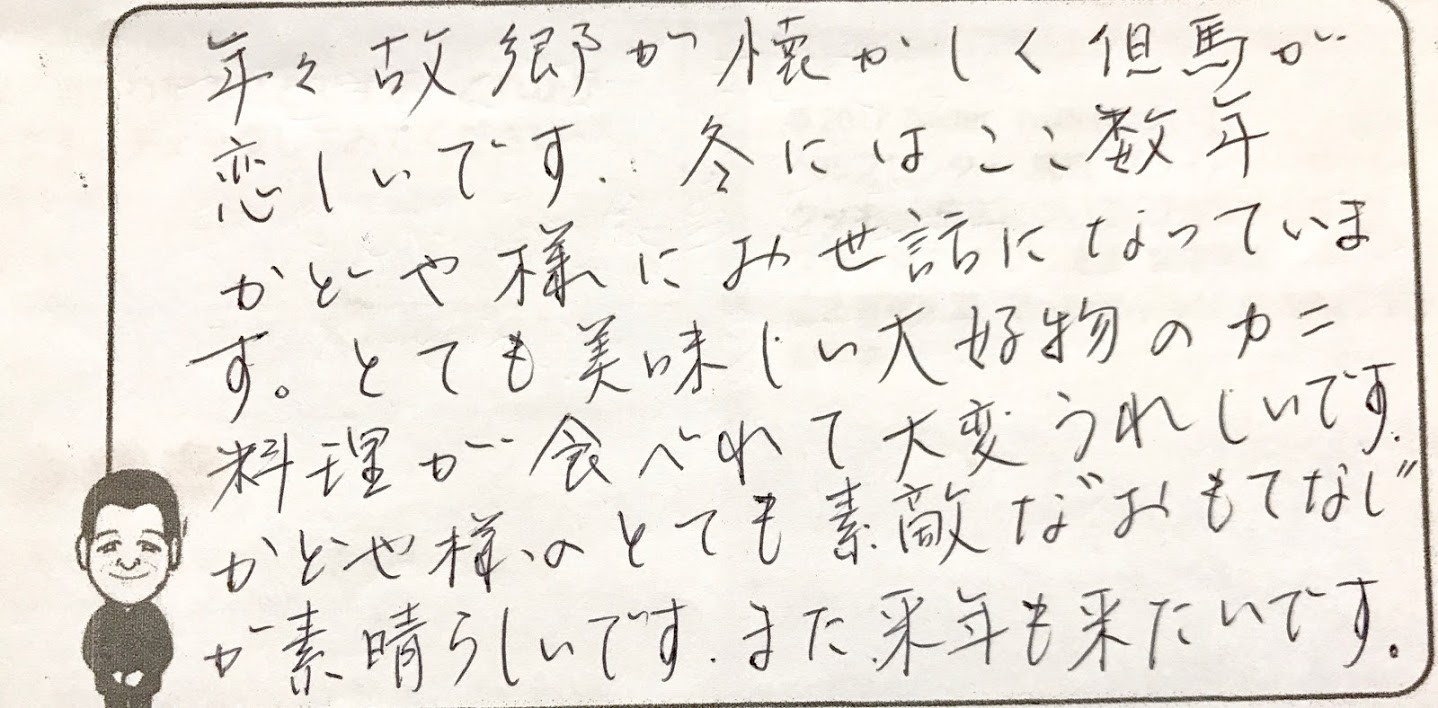 年々故郷が懐かしく但馬が
恋しいです。冬にはここ数年
かどや様にお世話になっていま
す。とても美味しい大好物のカニ
料理が食べれて大変うれしいです。
かどや様のとても素敵な"おもてなし"
が素晴らしいです。また来年も来たいです。